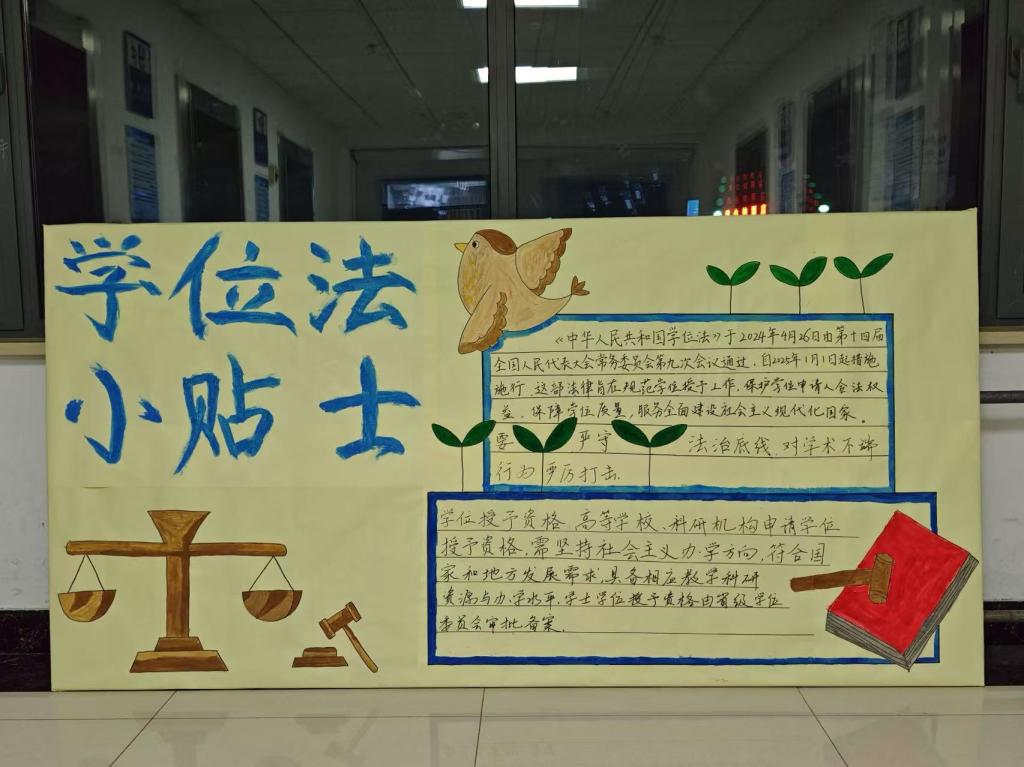 学位法
小贴士
《中华人民共和国学位法》于2024年4月26日由第十四届
全国人民代表大会常务委员会第九次会议通过,自2025年1月1日起措施
施行,这部法律旨在规范学位授予工作,保护学位申请人合法权
益,保障学位质量,服务全面建设社会主义现代化国家。
要 严守 法治底线,对学术不端
行为 严厉打击.
学位授予资格,高等学校、科研机构申请学位
授予资格,需坚持社会主义办学方向,符合国
家和地方发展需求,具备相应教学科研
资源与办学水平,学士学位授予资格由省级学位
委员会审批,备案.